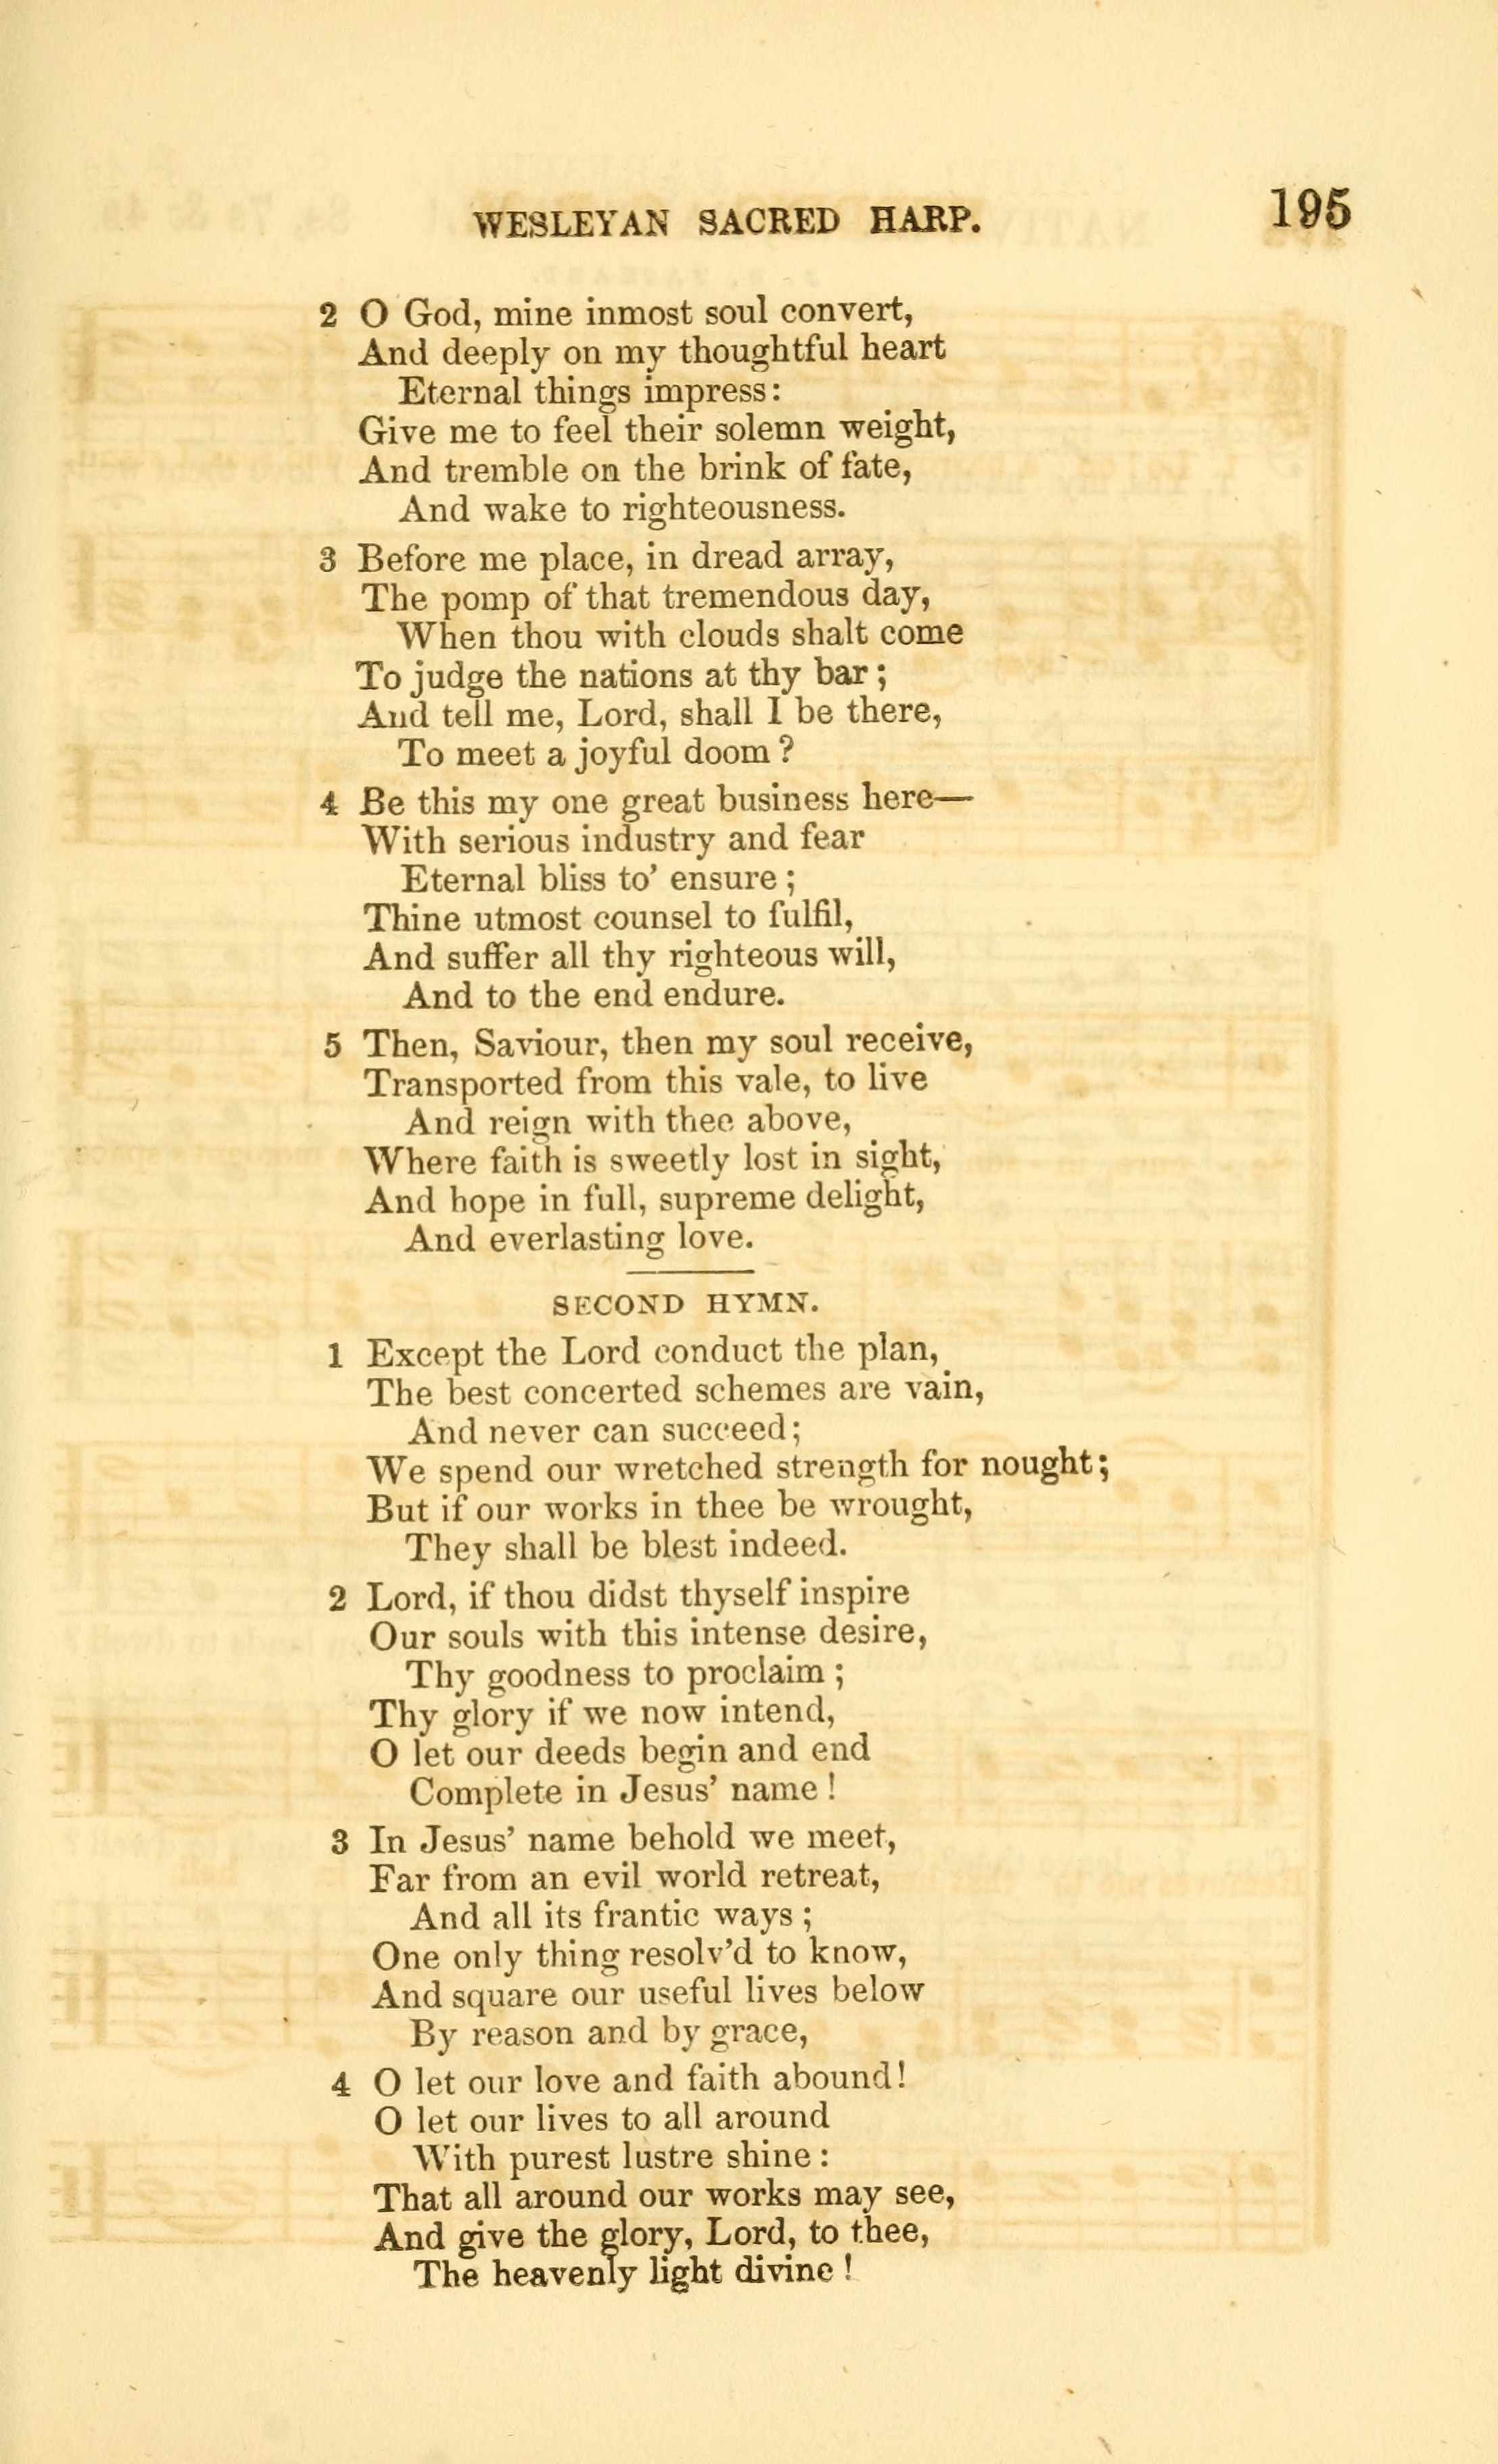 WESLEYAN SACRED HARP. 195
2 O God, mine inmost soul convert,
And deeply on my thoughtful heart
Eternal things impress:
Give me to feel their solemn weight,
And tremble on the brink of fate,
And wake to righteousness.
3 Before me place, in dread array,
The pomp of that tremendous day,
When thou with clouds shalt come
To judge the nations at thy bar;
And tell me, Lord, shall I be there,
To meet a joyful doom?
4 Be this my one great business here—
With serious industry and fear
Eternal bliss to' ensure;
Thine utmost counsel to fulfil,
And suffer all thy righteous will,
And to the end endure.
5 Then, Saviour, then my soul receive,
Transported from this vale, to live
And reign with thee above,
Where faith is sweetly lost in sight,
And hope in full, supreme delight,
And everlasting love.
SECOND HYMN.
1 Except the Lord conduct the plan,
The best concerted schemes are vain,
And never can succeed;
We spend our wretched strength for nought;
But if our works in thee be wrought,
They shall be blest indeed.
2 Lord, if thou didst thyself inspire
Our souls with this intense desire,
Thy goodness to proclaim;
Thy glory if we now intend,
O let our deeds begin and end
Complete in Jesus' name!
3 In Jesus' name behold we meet,
Far from an evil world retreat,
And all its frantic ways;
One only thing resolv'd to know,
And square our useful lives below
By reason and by grace,
4 O let our love and faith abound!
O let our lives to all around
With purest lustre shine:
That all around our works may see,
And give the glory, Lord, to thee,
The heavenly light divine!